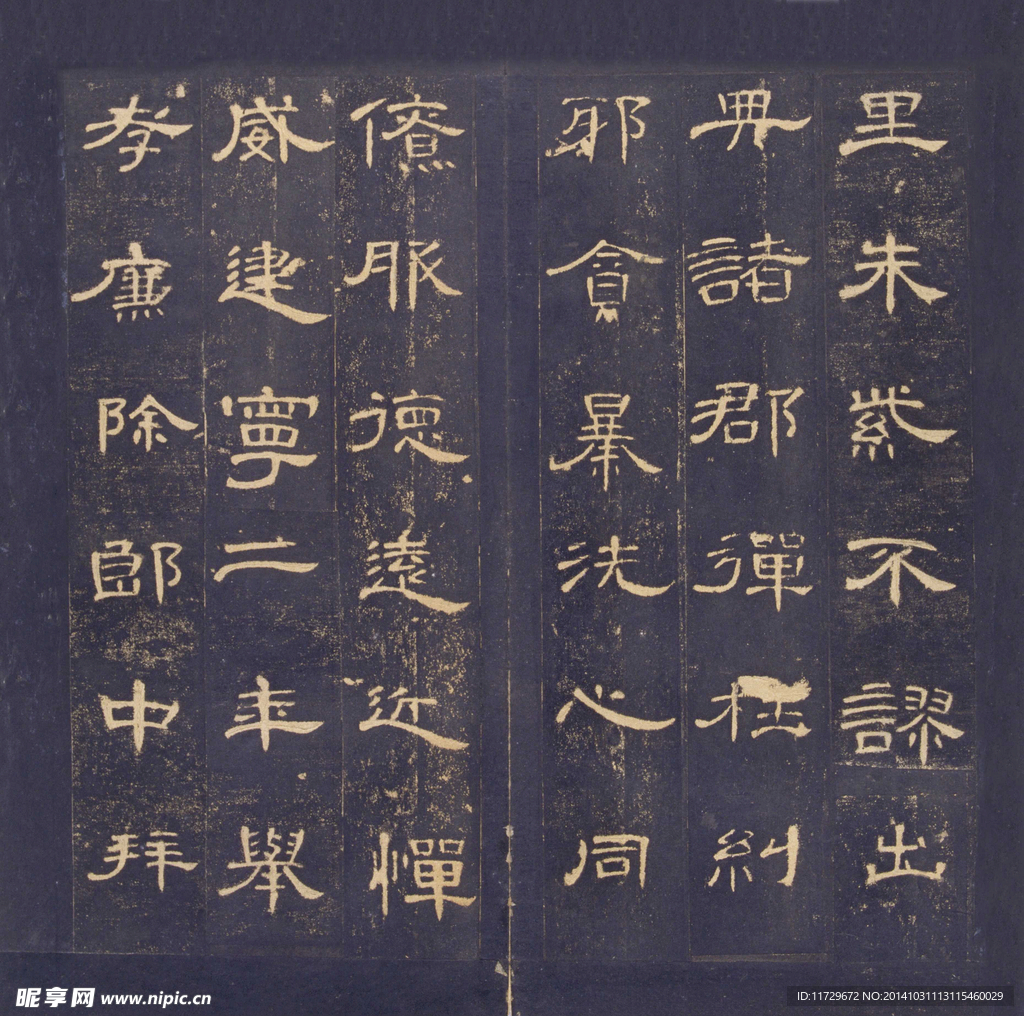 里朱紫不謬出
典諸郡彈枉糾
邪貪暴洗心同
僚服德遠近憚
威建寧二年舉
孝廉除郎中拜
昵享网 www.nipic.cn
ID:11729672 NO:20141031113115460029